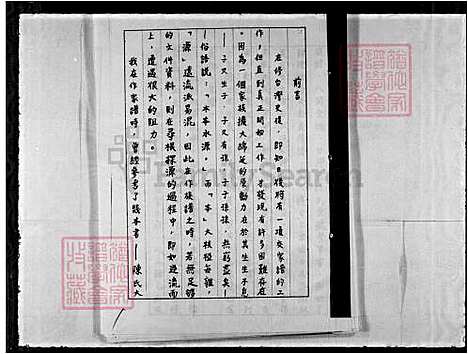 前言
在修台灣史後，即知日後將有一項修家譜的工
作，但直到真正開始工作，才發現有許多困難存在
。因為一個家族擴大綿延的原動力在於其生生子息
—子又生子，子又有孫，子子孫孫，無窮盡矣—
俗語說：「木本水源。」而「本」大枝極每雜，
「源」遠流派易混，因此在作族譜之時，若無足夠
的文件資料，則在尋根探源的過程中，即如逆流而
上，遭遇很大的阻力。
我在作家譜時，曾經參考了幾本書—陳氏大
FamilySearch